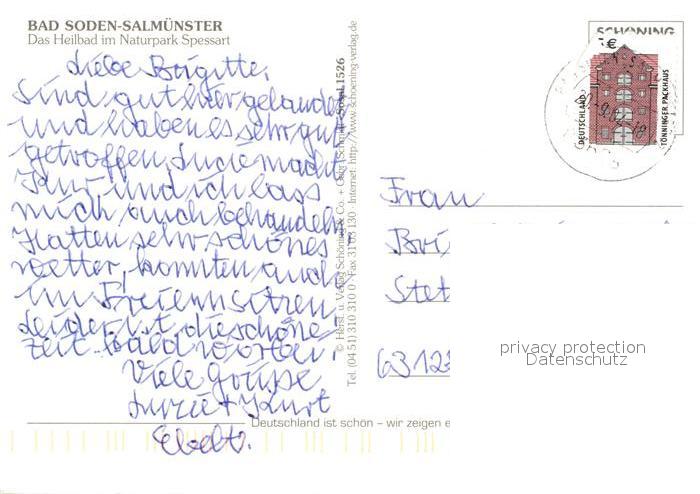 BAD SODEN-SALMÜNSTER
Das Heilbad im Naturpark Spessart
Liebe Brigitte,
Sind gut hier gelandet
und haben es sehr gut
getroffen, Lucie macht
Kur und ich lass
mich auch behandeln
Hatten sehr schönes
wetter, konnten auch
im Freien sitzen
Leider ist die schöne
zeit bald vorbei.
Viele Grüße
Lucie + Kurt
© Herst. u. Verlag Schöning & Co. + Gebr. Schmidt
1526
Tel. (04 51) 310 310 0 · Fax 31 03 130 · Internet: http://www.schoening-verlag.de
SCHÖNING
€
DEUTSCHLAND
TÖNNINGER PACKHAUS
Frau
Bri
Stet
privacy protection
Datenschutz
Deutschland ist schön – wir zeigen e